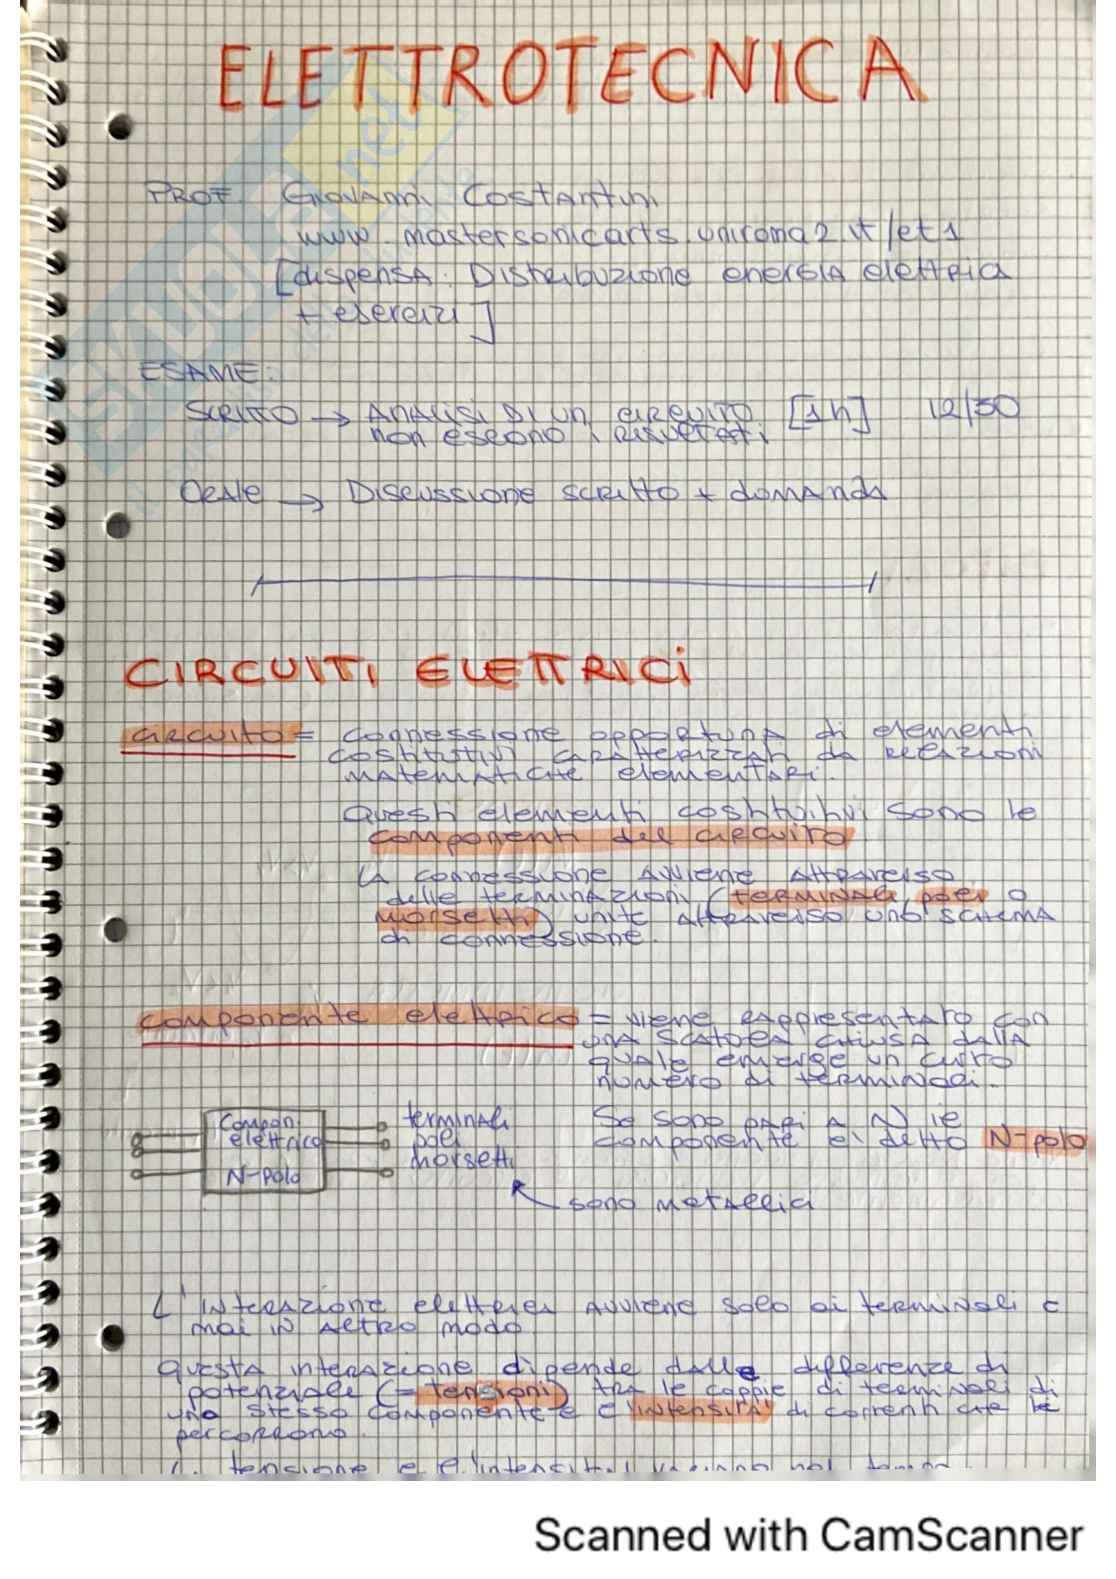 ELETTROTECNICA
PROF. Giovanni Costantini
www.mastersonicarts.uniroma2.it/et1
[dispensa: Distribuzione energia elettrica
+ esercizi]
ESAME:
SCRITTO → ANALISI DI UN CIRCUITO [1h] 12/30
non escono i risultati
ORALE → Discussione scritto + domanda
CIRCUITI ELETTRICI
circuito = connessione opportuna di elementi
costitutivi caratterizzati da relazioni
matematiche elementari.
Questi elementi costitutivi sono le
componenti del circuito
La connessione avviene attraverso
delle terminazioni (terminali, poli o
morsetti) unite attraverso uno schema
di connessione.
componente elettrico = viene rappresentato con
una scatola chiusa dalla
quale emerge un certo
numero di terminali.
Compon.
elettrico
N-polo
terminali
poli
morsetti
Se sono pari a N il
componente è detto N-polo
sono metallici
L'interazione elettrica avviene solo ai terminali e
mai in altro modo
Questa interazione dipende dalle differenze di
potenziale (= tensioni) tra le coppie di terminali di
uno stesso componente e l'intensità di correnti che le
percorrono.
tensione e l'intensità
Scanned with CamScanner
SKUOLA.net